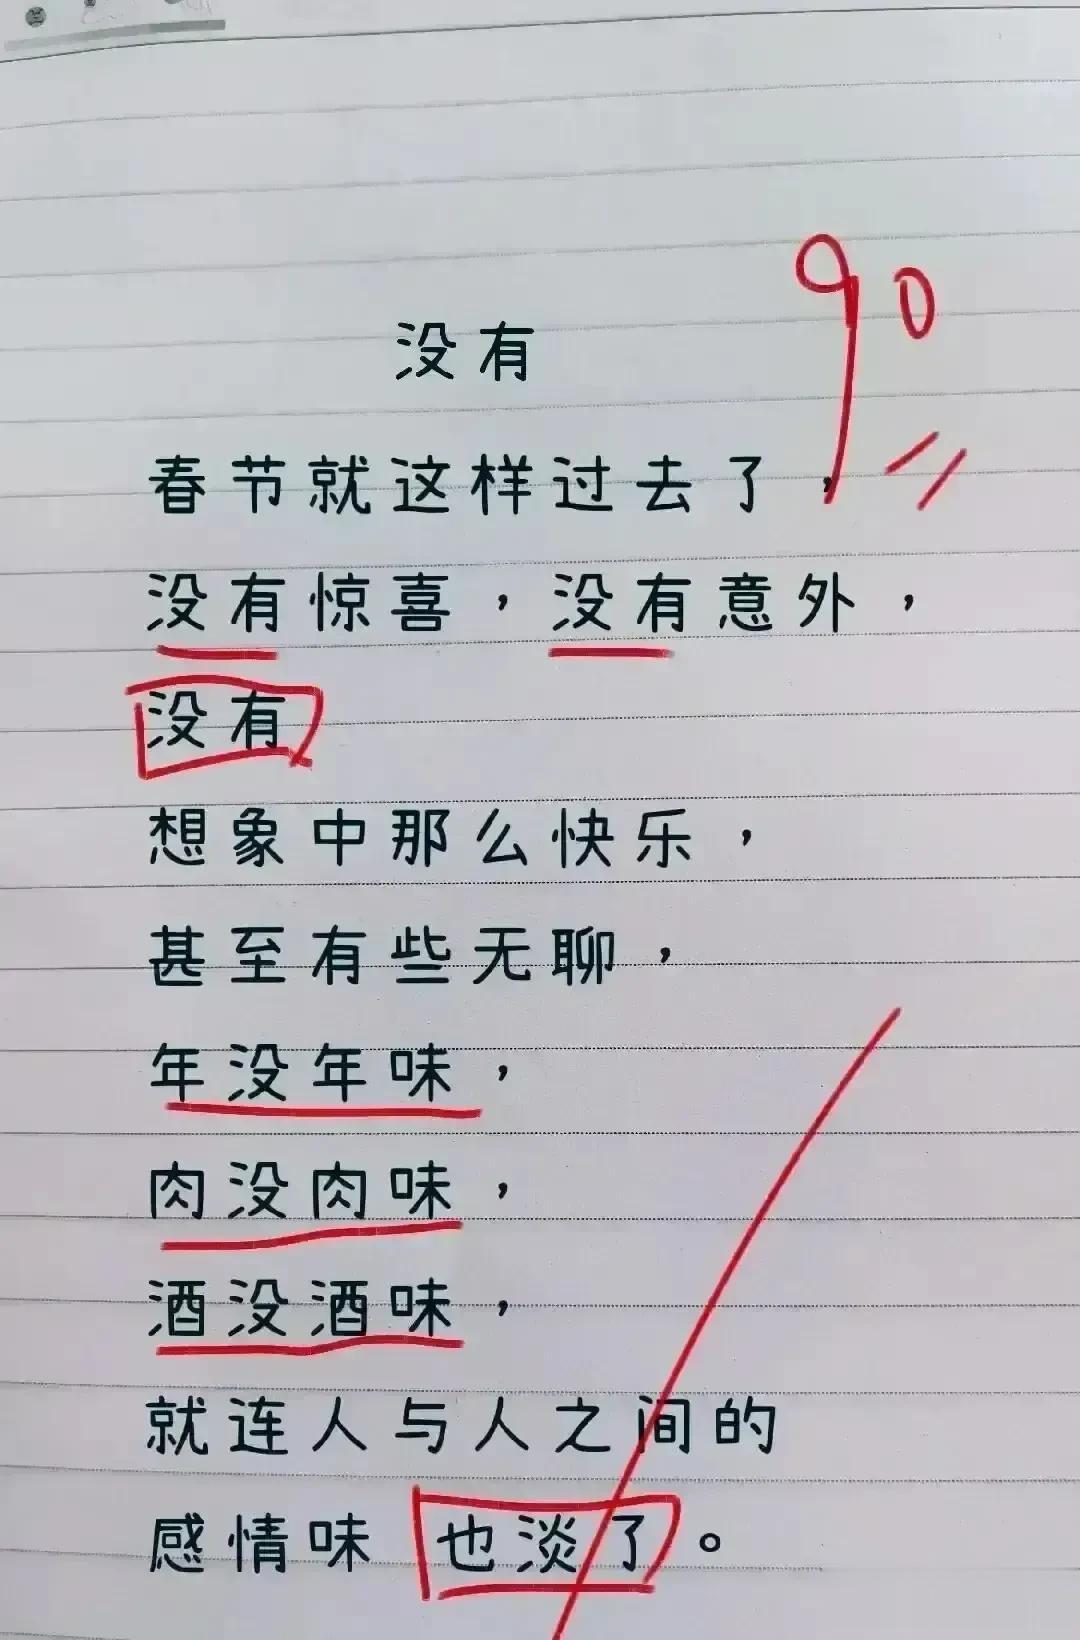 没有
90
春节就这样过去了，
没有惊喜，没有意外，
没有
想象中那么快乐，
甚至有些无聊，
年没年味，
肉没肉味，
酒没酒味，
就连人与人之间的
感情味也淡了。